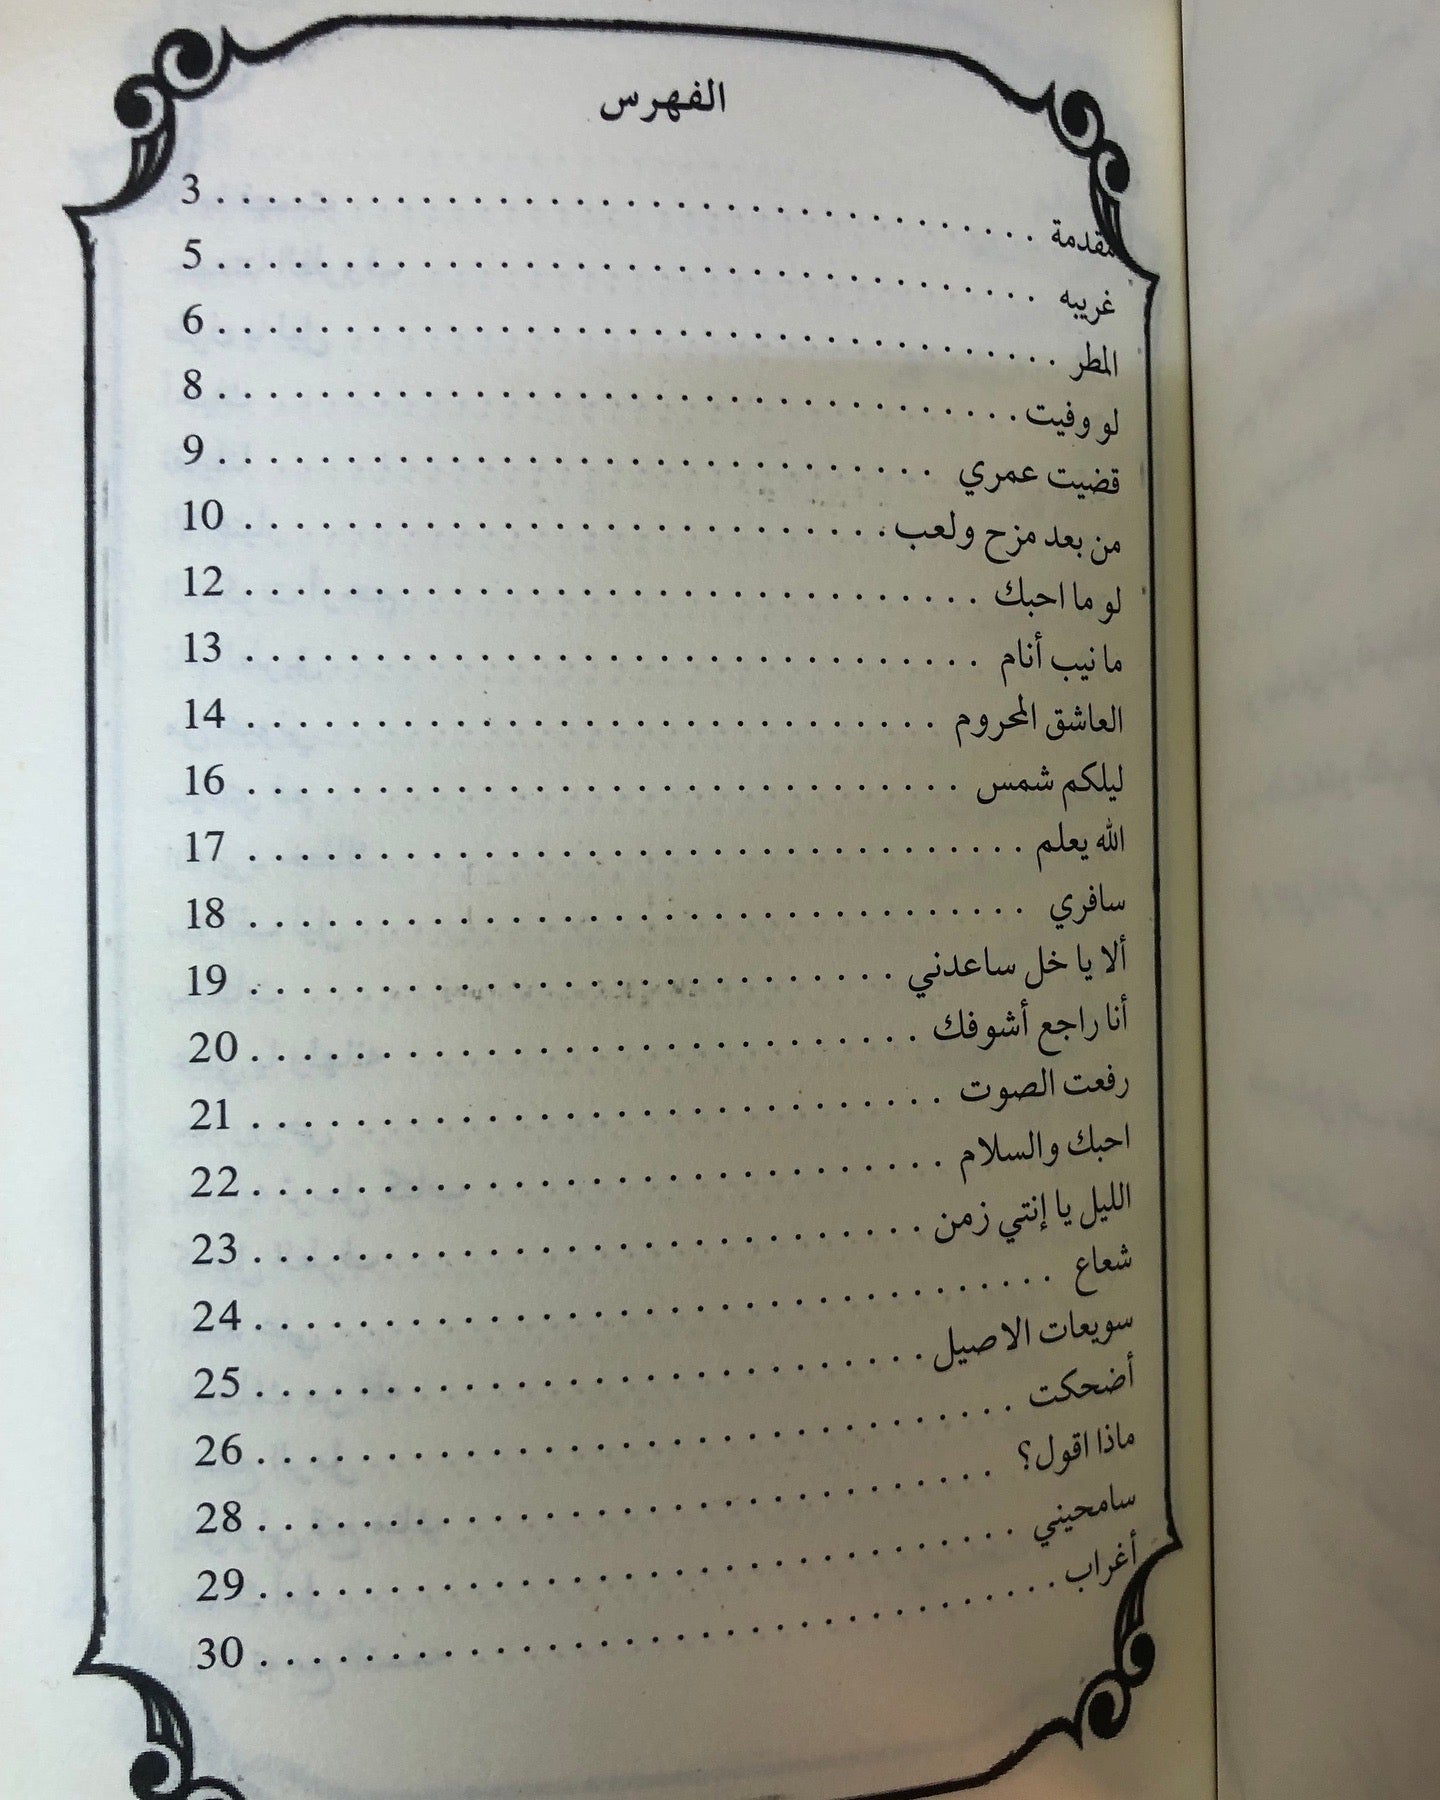 الفهرس
مقدمة . . . . . . . . . . . . . . . . . . . . . . . . . . . . . . . . 3
غريبه . . . . . . . . . . . . . . . . . . . . . . . . . . . . . . . . 5
المطر . . . . . . . . . . . . . . . . . . . . . . . . . . . . . . . . 6
لو وفيت . . . . . . . . . . . . . . . . . . . . . . . . . . . . . . . 8
قضيت عمري . . . . . . . . . . . . . . . . . . . . . . . . . . . . 9
من بعد مزح ولعب . . . . . . . . . . . . . . . . . . . . . . . . . 10
لو ما احبك . . . . . . . . . . . . . . . . . . . . . . . . . . . . . 12
ما نيب أنام . . . . . . . . . . . . . . . . . . . . . . . . . . . . . 13
العاشق المحروم . . . . . . . . . . . . . . . . . . . . . . . . . . . 14
ليلكم شمس . . . . . . . . . . . . . . . . . . . . . . . . . . . . 16
الله يعلم . . . . . . . . . . . . . . . . . . . . . . . . . . . . . . 17
سافري . . . . . . . . . . . . . . . . . . . . . . . . . . . . . . 18
ألا يا خل ساعدني . . . . . . . . . . . . . . . . . . . . . . . . . 19
أنا راجع أشوفك . . . . . . . . . . . . . . . . . . . . . . . . . . 20
رفعت الصوت . . . . . . . . . . . . . . . . . . . . . . . . . . . 21
احبك والسلام . . . . . . . . . . . . . . . . . . . . . . . . . . . 22
الليل يا إنتي زمن . . . . . . . . . . . . . . . . . . . . . . . . . . 23
شعاع . . . . . . . . . . . . . . . . . . . . . . . . . . . . . . . 24
سويعات الاصيل . . . . . . . . . . . . . . . . . . . . . . . . . . 25
أضحكت . . . . . . . . . . . . . . . . . . . . . . . . . . . . . . 26
ماذا اقول؟ . . . . . . . . . . . . . . . . . . . . . . . . . . . . . 28
سامحيني . . . . . . . . . . . . . . . . . . . . . . . . . . . . . . 29
أغراب . . . . . . . . . . . . . . . . . . . . . . . . . . . . . . . 30